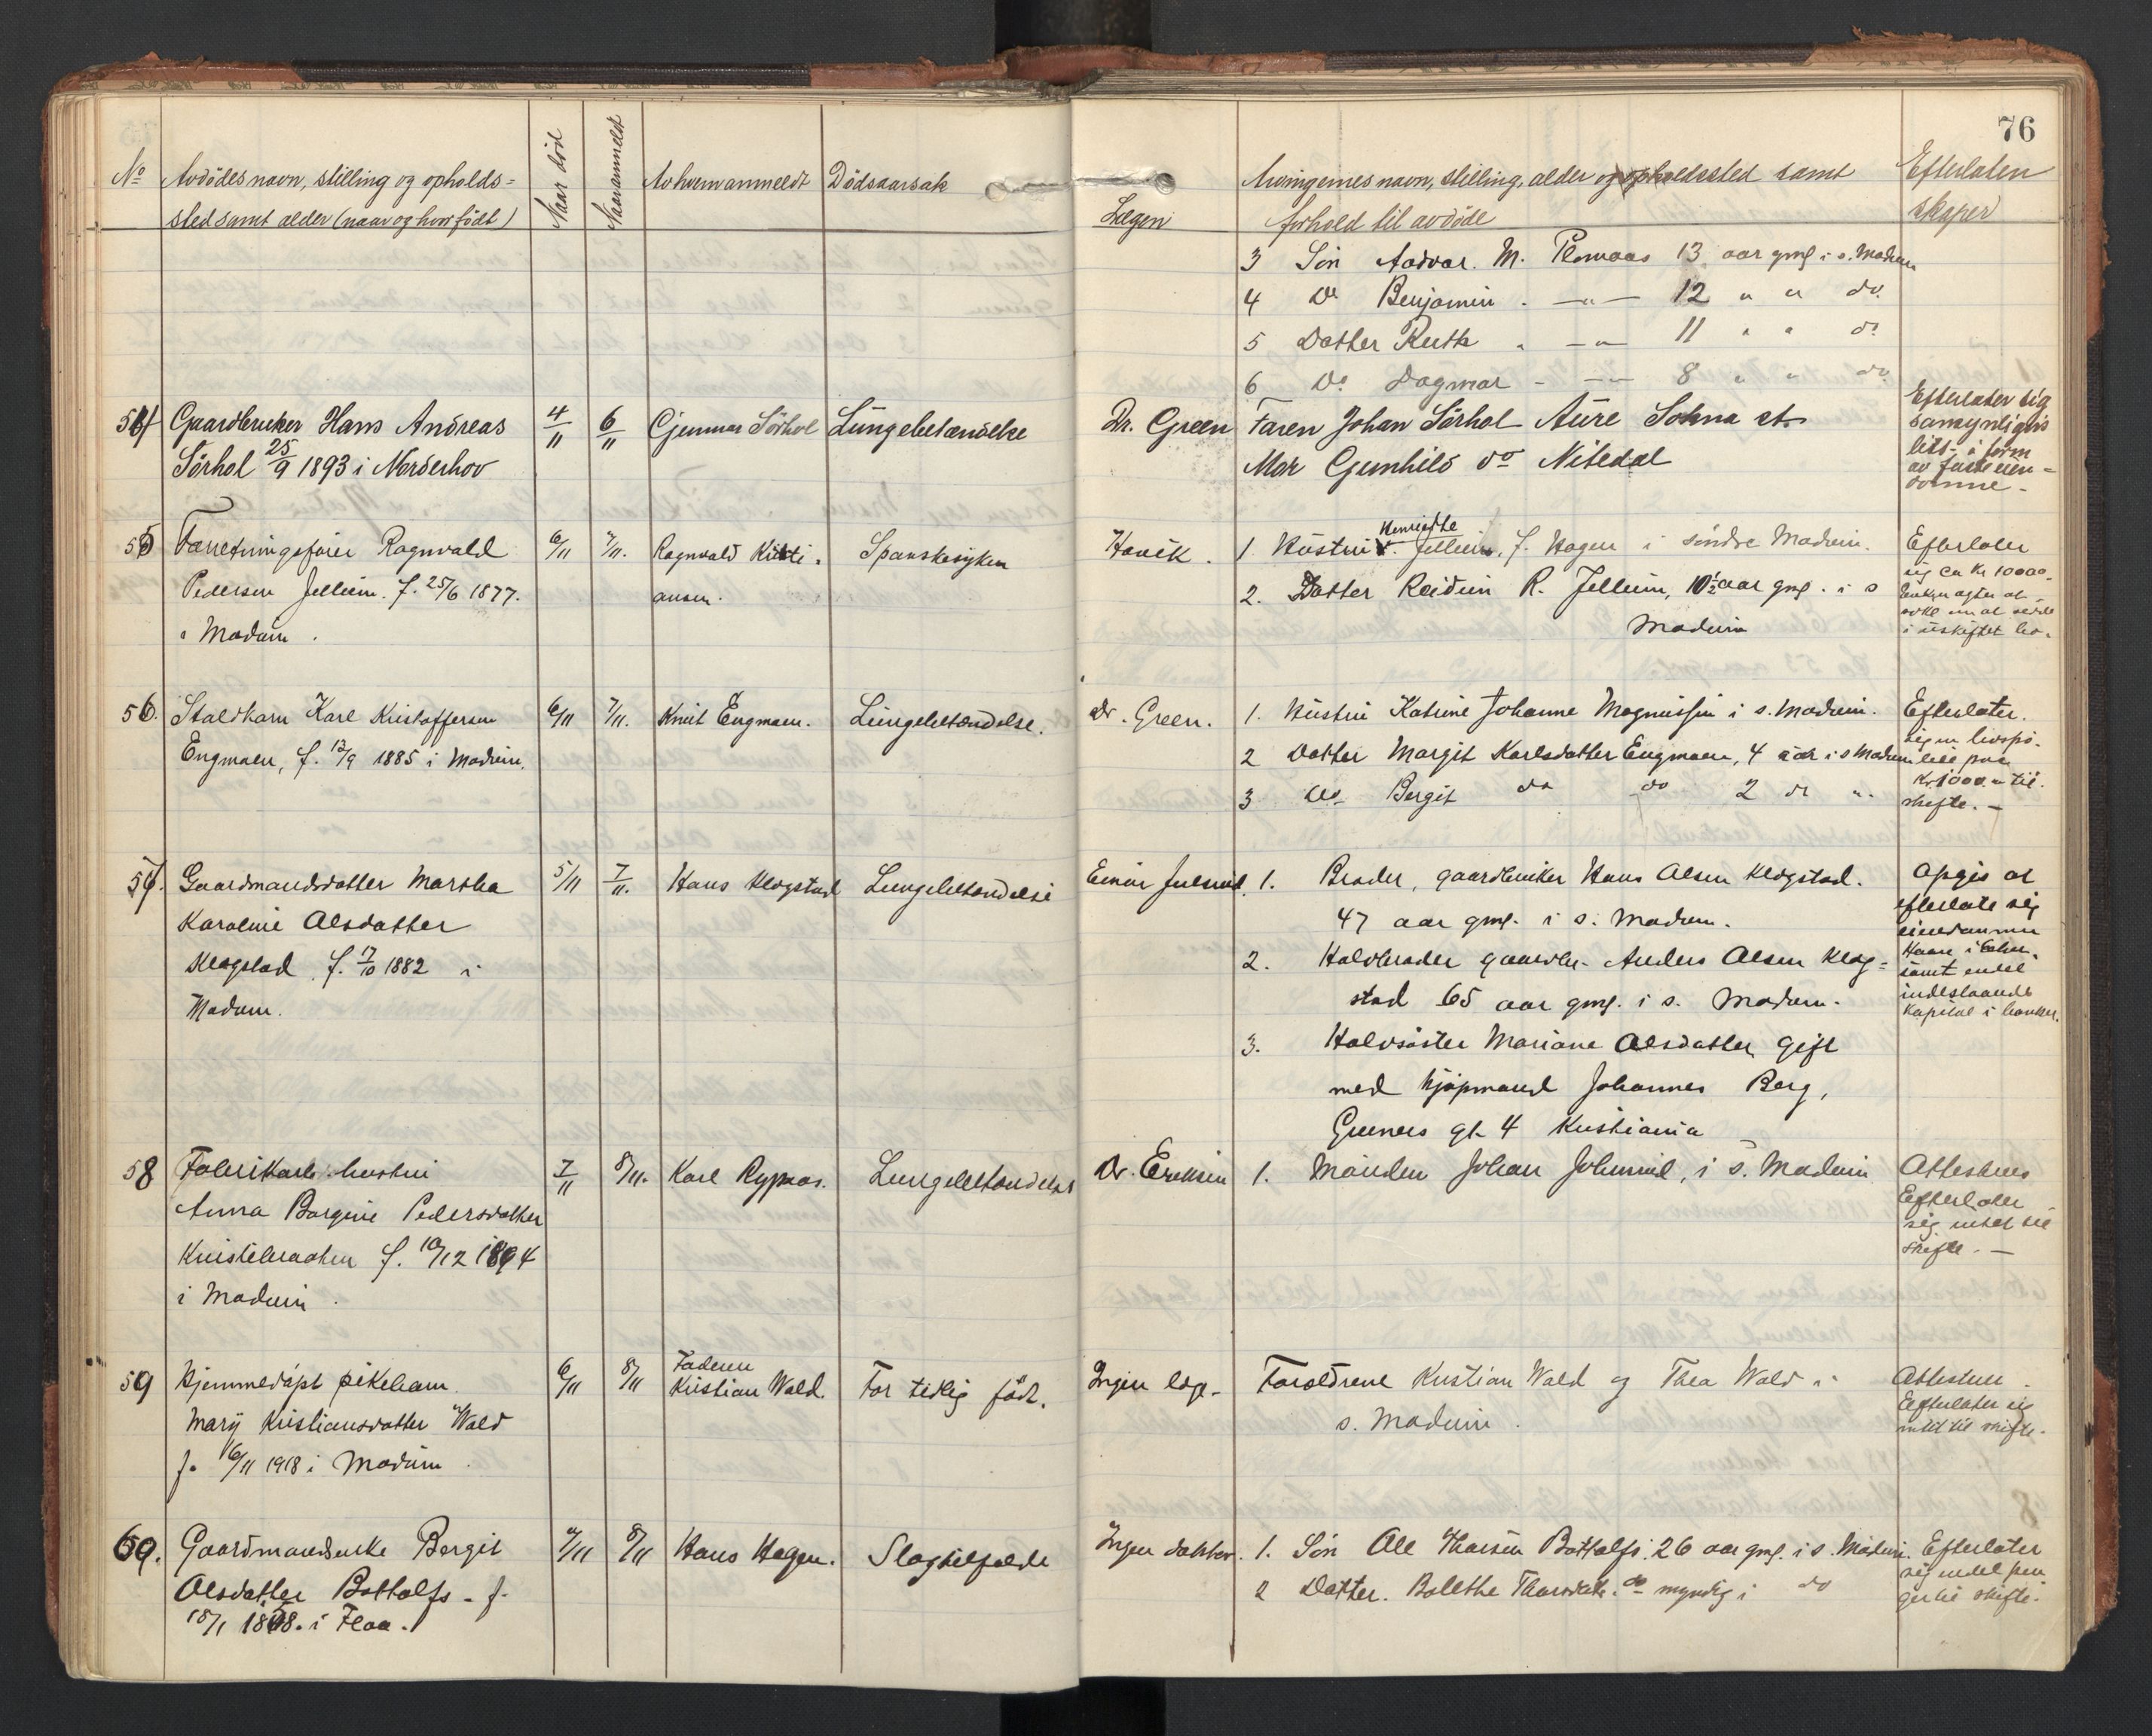 76
No Avdödes navn, stilling og opholds=
sted samt alder (naar og hvor födt)
Naar död
Naar anmeldt
Av hvem anmeldt
Dödsaarsak
Lægen
Arvingernes navn, stilling, alder og opholdssted samt
forhold til avdöde
Efterladen
skaper
3 Sön Aadvar. M. 13 aar gml i s. Modum
4 Do Benjamin . —„— 12 „ „ do.
5 Datter Ruth „ —„— 11 „ „ do.
6 Do. Dagmar - —„— 8 „ „ do.
54 Gaardbruker Hans Andreas
Sörhol 25/9 1893 i Norderhov
4/11
6/11
Gunnar Sörhol
Lungebetændelse
Dr. Green
Faren Johan Sörhol Aure Sokna st.
Mor Gunhild do Nitedal
Efterlater sig
sansynligvis
litt i form
av faste eien=
domme -
55 Forretningsförer Ragnvald
Pedersen Jelleim. f. 25/6 1877.
i Modum .
6/11
7/11.
Ragnvald Kristi-
ansen.
Spanskesyken
Havik .
1. Hustru Henriette Jelleim, f. Hagen i söndre Modum.
2. Datter Reidun R. Jelleim, 10½ aar gml. i s
Modum
Efterlater
sig ca Kr 10000.
Enken agter at
söke om at sidde
i uskiftet bo.
56. Staldkarn Karl Kristoffersen
Engmoen, f. 12/9 1885 i Modum.
6/11
7/11.
Knut Engmoen.
Lungebetændelse.
Dr. Green.
1. Hustru Katrine Johanne Magnussen i s. Modum.
2 Datter Margit Karlsdatter Engmoen, 4 aar i s Modum
3 do Bergit do do 2 do „.
Efterlater.
sig en livspo-
lise paa
Kr 1000.- til
skifte. —
57. Gaardmandsdatter Martha
Karoline Olsdatter
Klogstad f. 7/10 1882 i
Modum.
5/11
7/11.
Hans Klogstad
Lungebetændelse
Einar Julsrud.
1. Broder, gaardbruker Hans Olsen Klogstad.
47 aar gml. i s. Modum.
2. Halvbroder gaardbr. Anders Olsen Klog=
stad 65 aar gml. i s. Modum.
3. Halvsöster Mariane Olsdatter gift
med kjöpmand Johannes Berg,
Gruners gt. 4 Kristiania
Opgis at
efterlate sig
eiendommen
Haan i
samt endel
indestaaende
kapital i banker.
58 Fabrikarb. hustru
Anna Borgine Pedersdatter
Kristibraaten f. 10/12 1894
i Modum .
7/11
8/11.
Karl Rypaas.
Lungebetændelse
Dr. Eriksen
1. Manden Johan Johnsrud, i s. Modum
Attesteres
Efterlater
sig intet til
skifte. —
59 Hjemmedöpt pikebarn.
Mary Kristiansdatter Wald
f. 6/11 1918 i Modum
6/11
8/11
Faderen
Kristian Wald.
For tidlig födt.
Ingen læge.
Forældrene Kristian Wald og Thea Wald i
s. Modum .
Attesteres
Efterlater sig
intet til skifte.
60. Gaardmandsenke Bergit
Olsdatter Bottolfs - f.
15/1 1848. i Flaa.
7/11
8/11
Hans Hagen.
Slagtilfælde
Ingen doktor.
1. Sön Ole Thorsen Bottolfs. 26 aar gml. i s. Modum.
2 Datter. Bolethe Thorsdatt. do myndig i do
Efterlater
sig endel pen
ger til skifte.